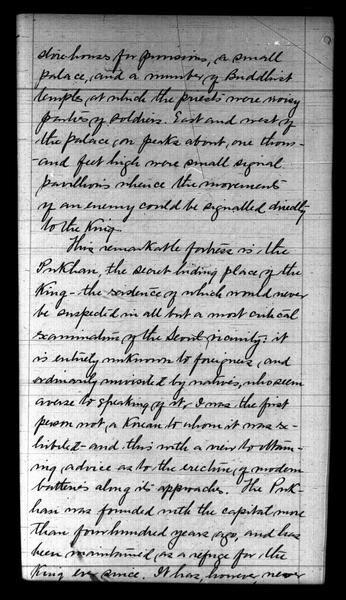 store houses for provisions, a small
palace, and a number of Buddhist
temples, at which the priests were noisy
parties of soldiers. East and west of
the palace, on peaks about, one thous-
and feet high were small signal
pavillions whence the movements
of an enemy could be signalled directly
to the King.
This remarkable fortress is the
Pukhan, the secret hiding place of the
King - the existence of which would never
be suspected in all but a most critical
examination of the Seoul vicinity: it
is entirely unknown to foreigners, and
ordinarily unvisited by natives, who seem
averse to speaking of it. I was the first
person not a Korean to whom it was ex-
hibited - and this with a view to obtain-
ing advice as to the erection of modern
batteries along its approaches. The Puk-
han was founded with the capital more
than four hundred years ago, and has
been maintained as a refuge for the
King ever since. It has, however, never